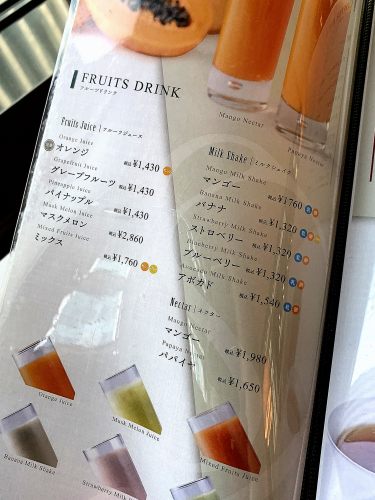 Mango Nectar
Papaya Nectar
FRUITS DRINK
フルーツドリンク
Fruits Juice | フルーツジュース
Orange Juice
オレンジ 税込¥1,430
Grapefruit Juice
グレープフルーツ 税込¥1,430
Pineapple Juice
パイナップル 税込¥1,430
Musk Melon Juice
マスクメロン 税込¥2,860
Mixed Fruits Juice
ミックス 税込¥1,760
Milk Shake | ミルクシェイク
Mango Milk Shake
マンゴー 税込¥1760
Banana Milk Shake
バナナ 税込¥1,320
Strawberry Milk Shake
ストロベリー 税込¥1,320
Blueberry Milk Shake
ブルーベリー 税込¥1,320
Avocado Milk Shake
アボカド 税込¥1,540
Nectar | ネクター
Mango Nectar
マンゴー 税込¥1,980
Papaya Nectar
パパイヤ 税込¥1,650
Orange Juice
Musk Melon Juice
Mixed Fruits Juice
Banana Milk Shake
Strawberry Milk